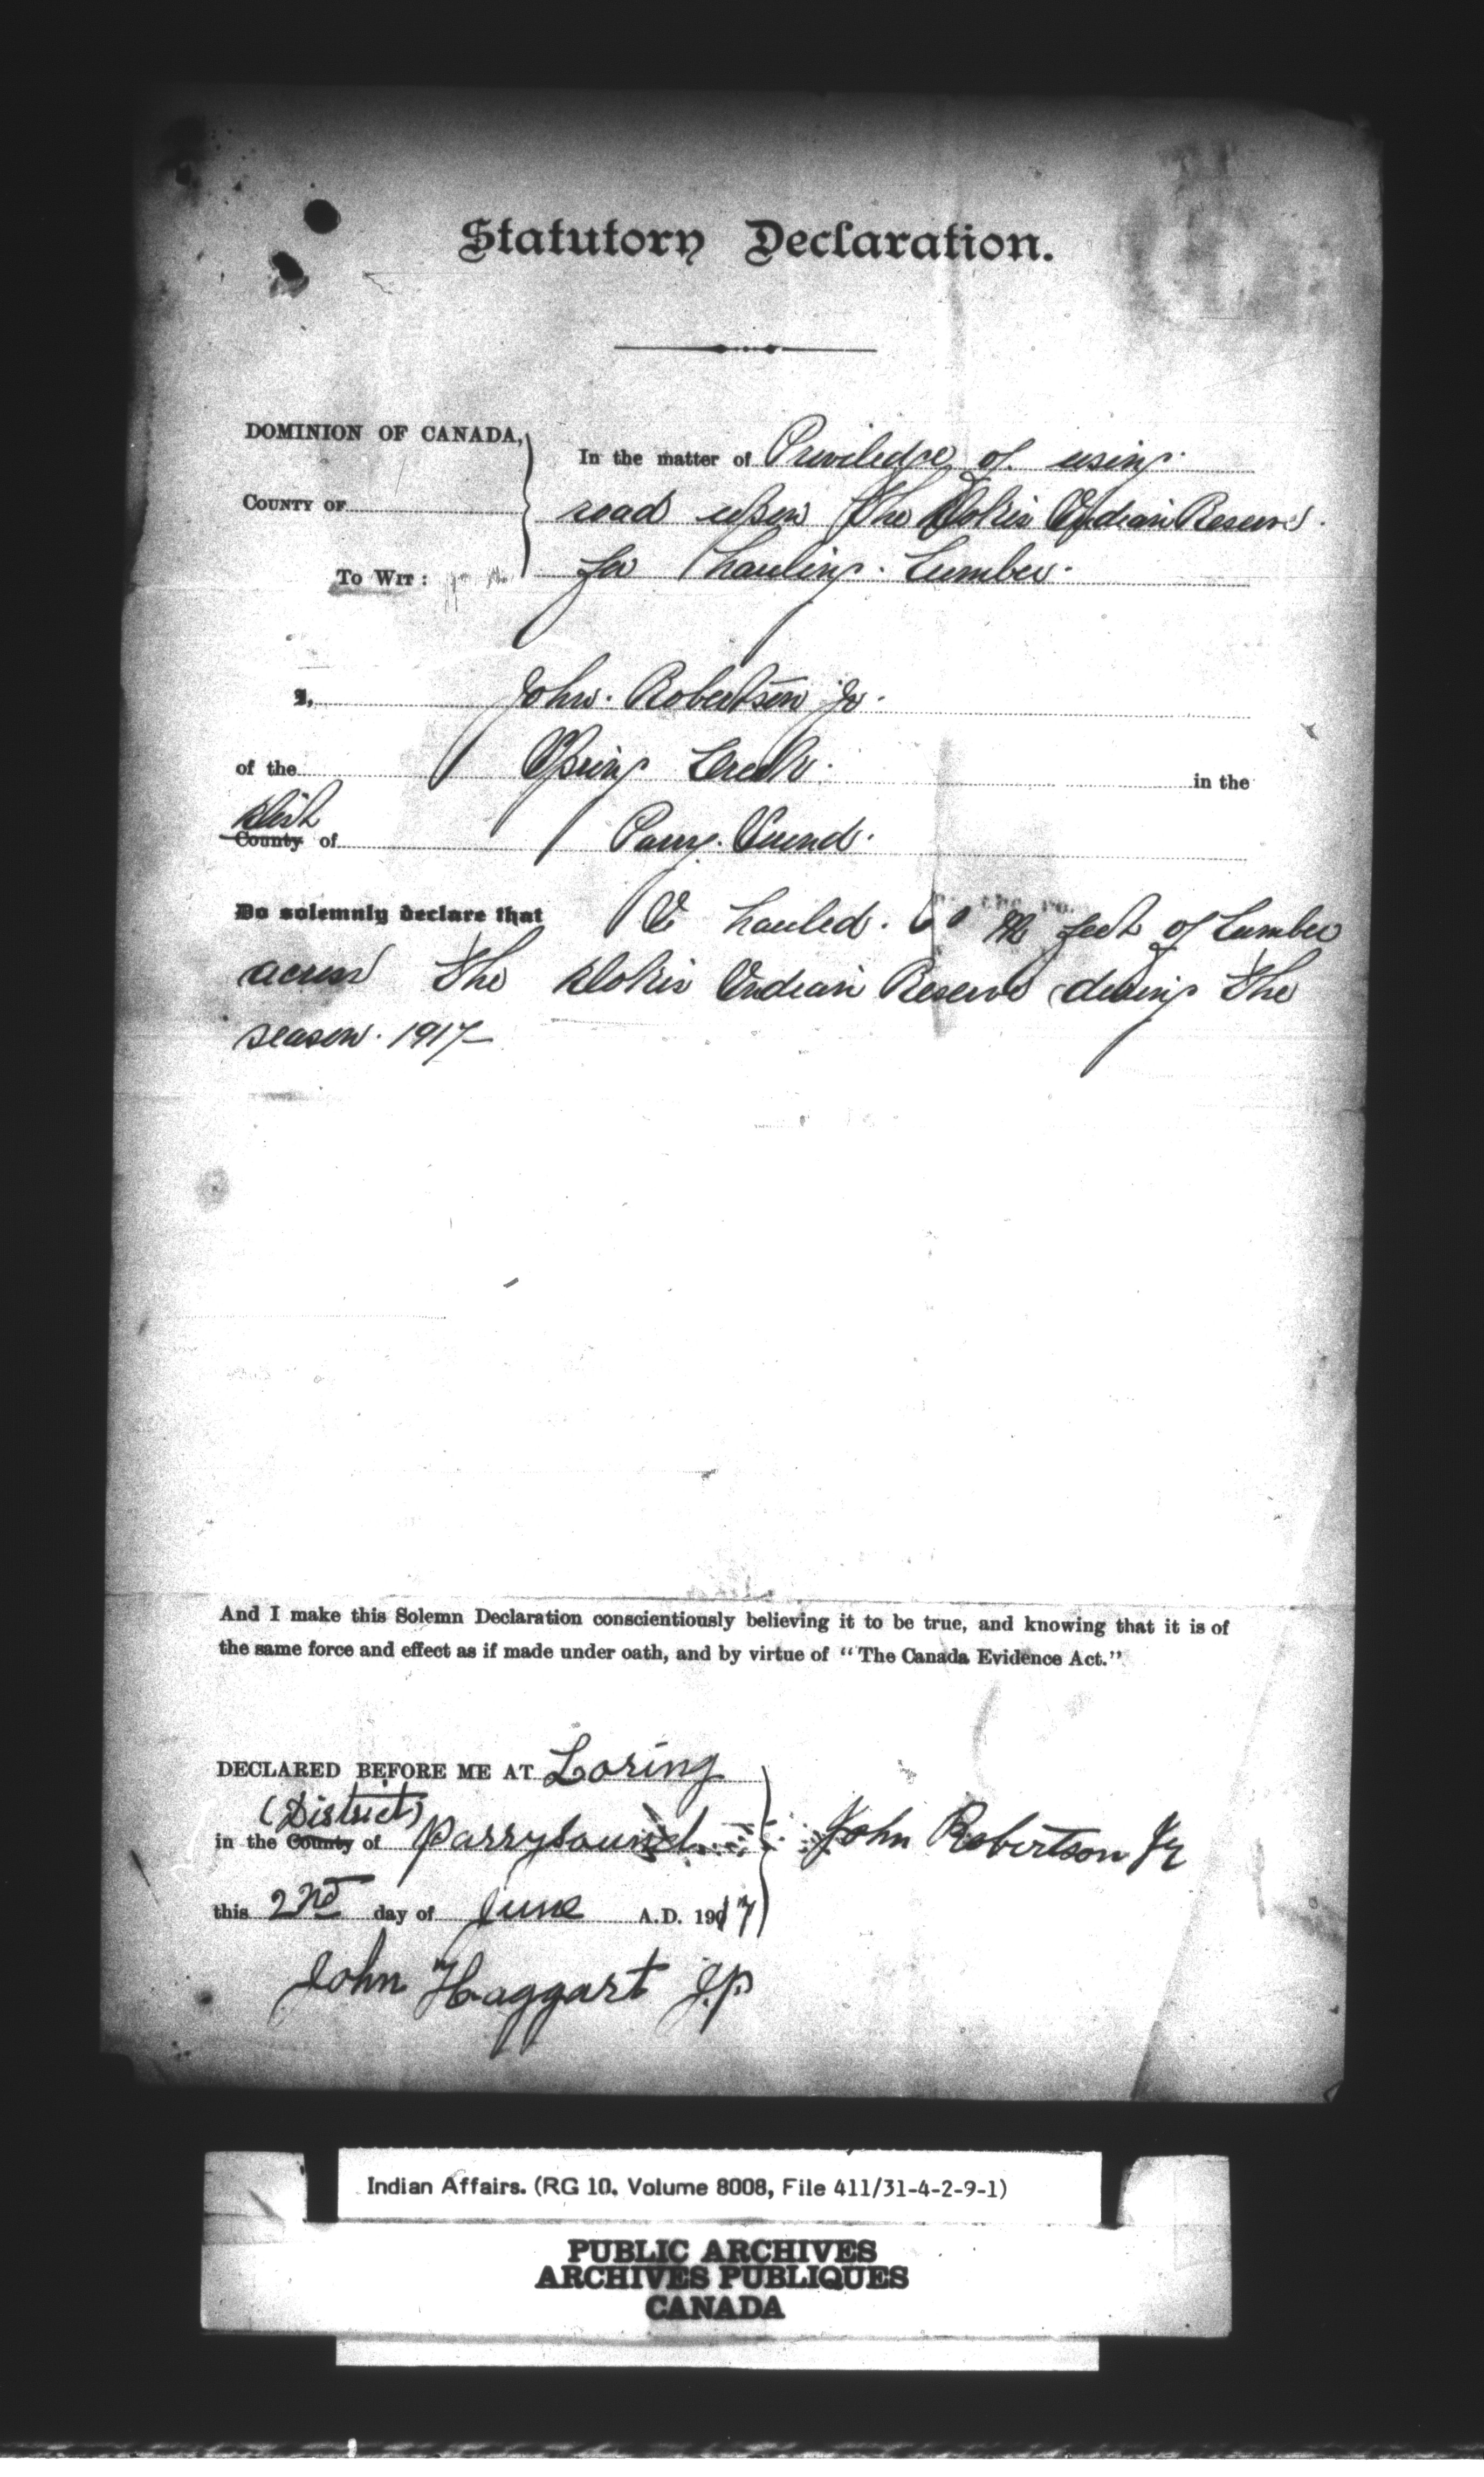 Statutory Declaration.
DOMINION OF CANADA,
COUNTY OF
To Wit:
In the matter of Priviledge of using
road upon the Dokis Indian Reserve.
for hauling Lumber.
I, John Robertson Jr.
of the Spring Creek. in the
Dist
County of Parry Sound.
Do solemnly declare that I hauled 60 M feet of Lumber
across the Dokis Indian Reserve during the
season 1917
And I make this Solemn Declaration conscientiously believing it to be true, and knowing that it is of
the same force and effect as if made under oath, and by virtue of "The Canada Evidence Act."
DECLARED BEFORE ME AT Loring
(District)
in the County of Parry Sound
John Robertson Jr
this 2nd day of June A.D. 1917
John Haggart J.P
Indian Affairs. (RG 10, Volume 8008, File 411/31-4-2-9-1)
PUBLIC ARCHIVES
ARCHIVES PUBLIQUES
CANADA